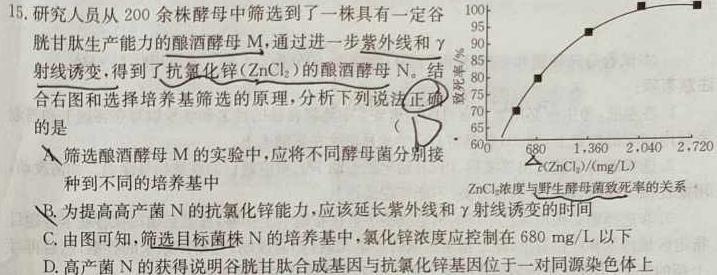 15. 研究人员从 200 余株酵母中筛选到了一株具有一定谷
胱甘肽生产能力的酿酒酵母 M,通过进一步紫外线和 γ
射线诱变,得到了抗氯化锌(ZnCl₂)的酿酒酵母 N。结
合右图和选择培养基筛选的原理,分析下列说法正确
的是 ( D )
A. 筛选酿酒酵母 M 的实验中,应将不同酵母菌分别接
种到不同的培养基中
B. 为提高高产菌 N 的抗氯化锌能力,应该延长紫外线和 γ 射线诱变的时间
C. 由图可知,筛选目标菌株 N 的培养基中,氯化锌浓度应控制在 680 mg/L 以下
D. 高产菌 N 的获得说明谷胱甘肽合成基因与抗氯化锌基因位于一对同源染色体上
致死率/%
100
95
90
85
80
75
70
65
60
680 1,360 2,040 2,720
c(ZnCl₂)/(mg/L)
ZnCl₂浓度与野生酵母菌致死率的关系